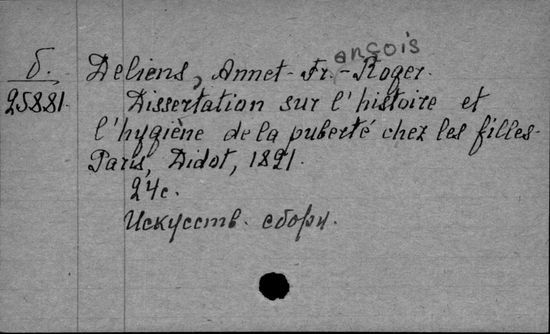 ançois
б. Deliens, Annet-Fr.-Roger.
25881. Dissertation sur l'histoire et
l'hygiène de la puberté chez les filles.
Paris, Didot, 1821.
24с.
Искусств. сборн.